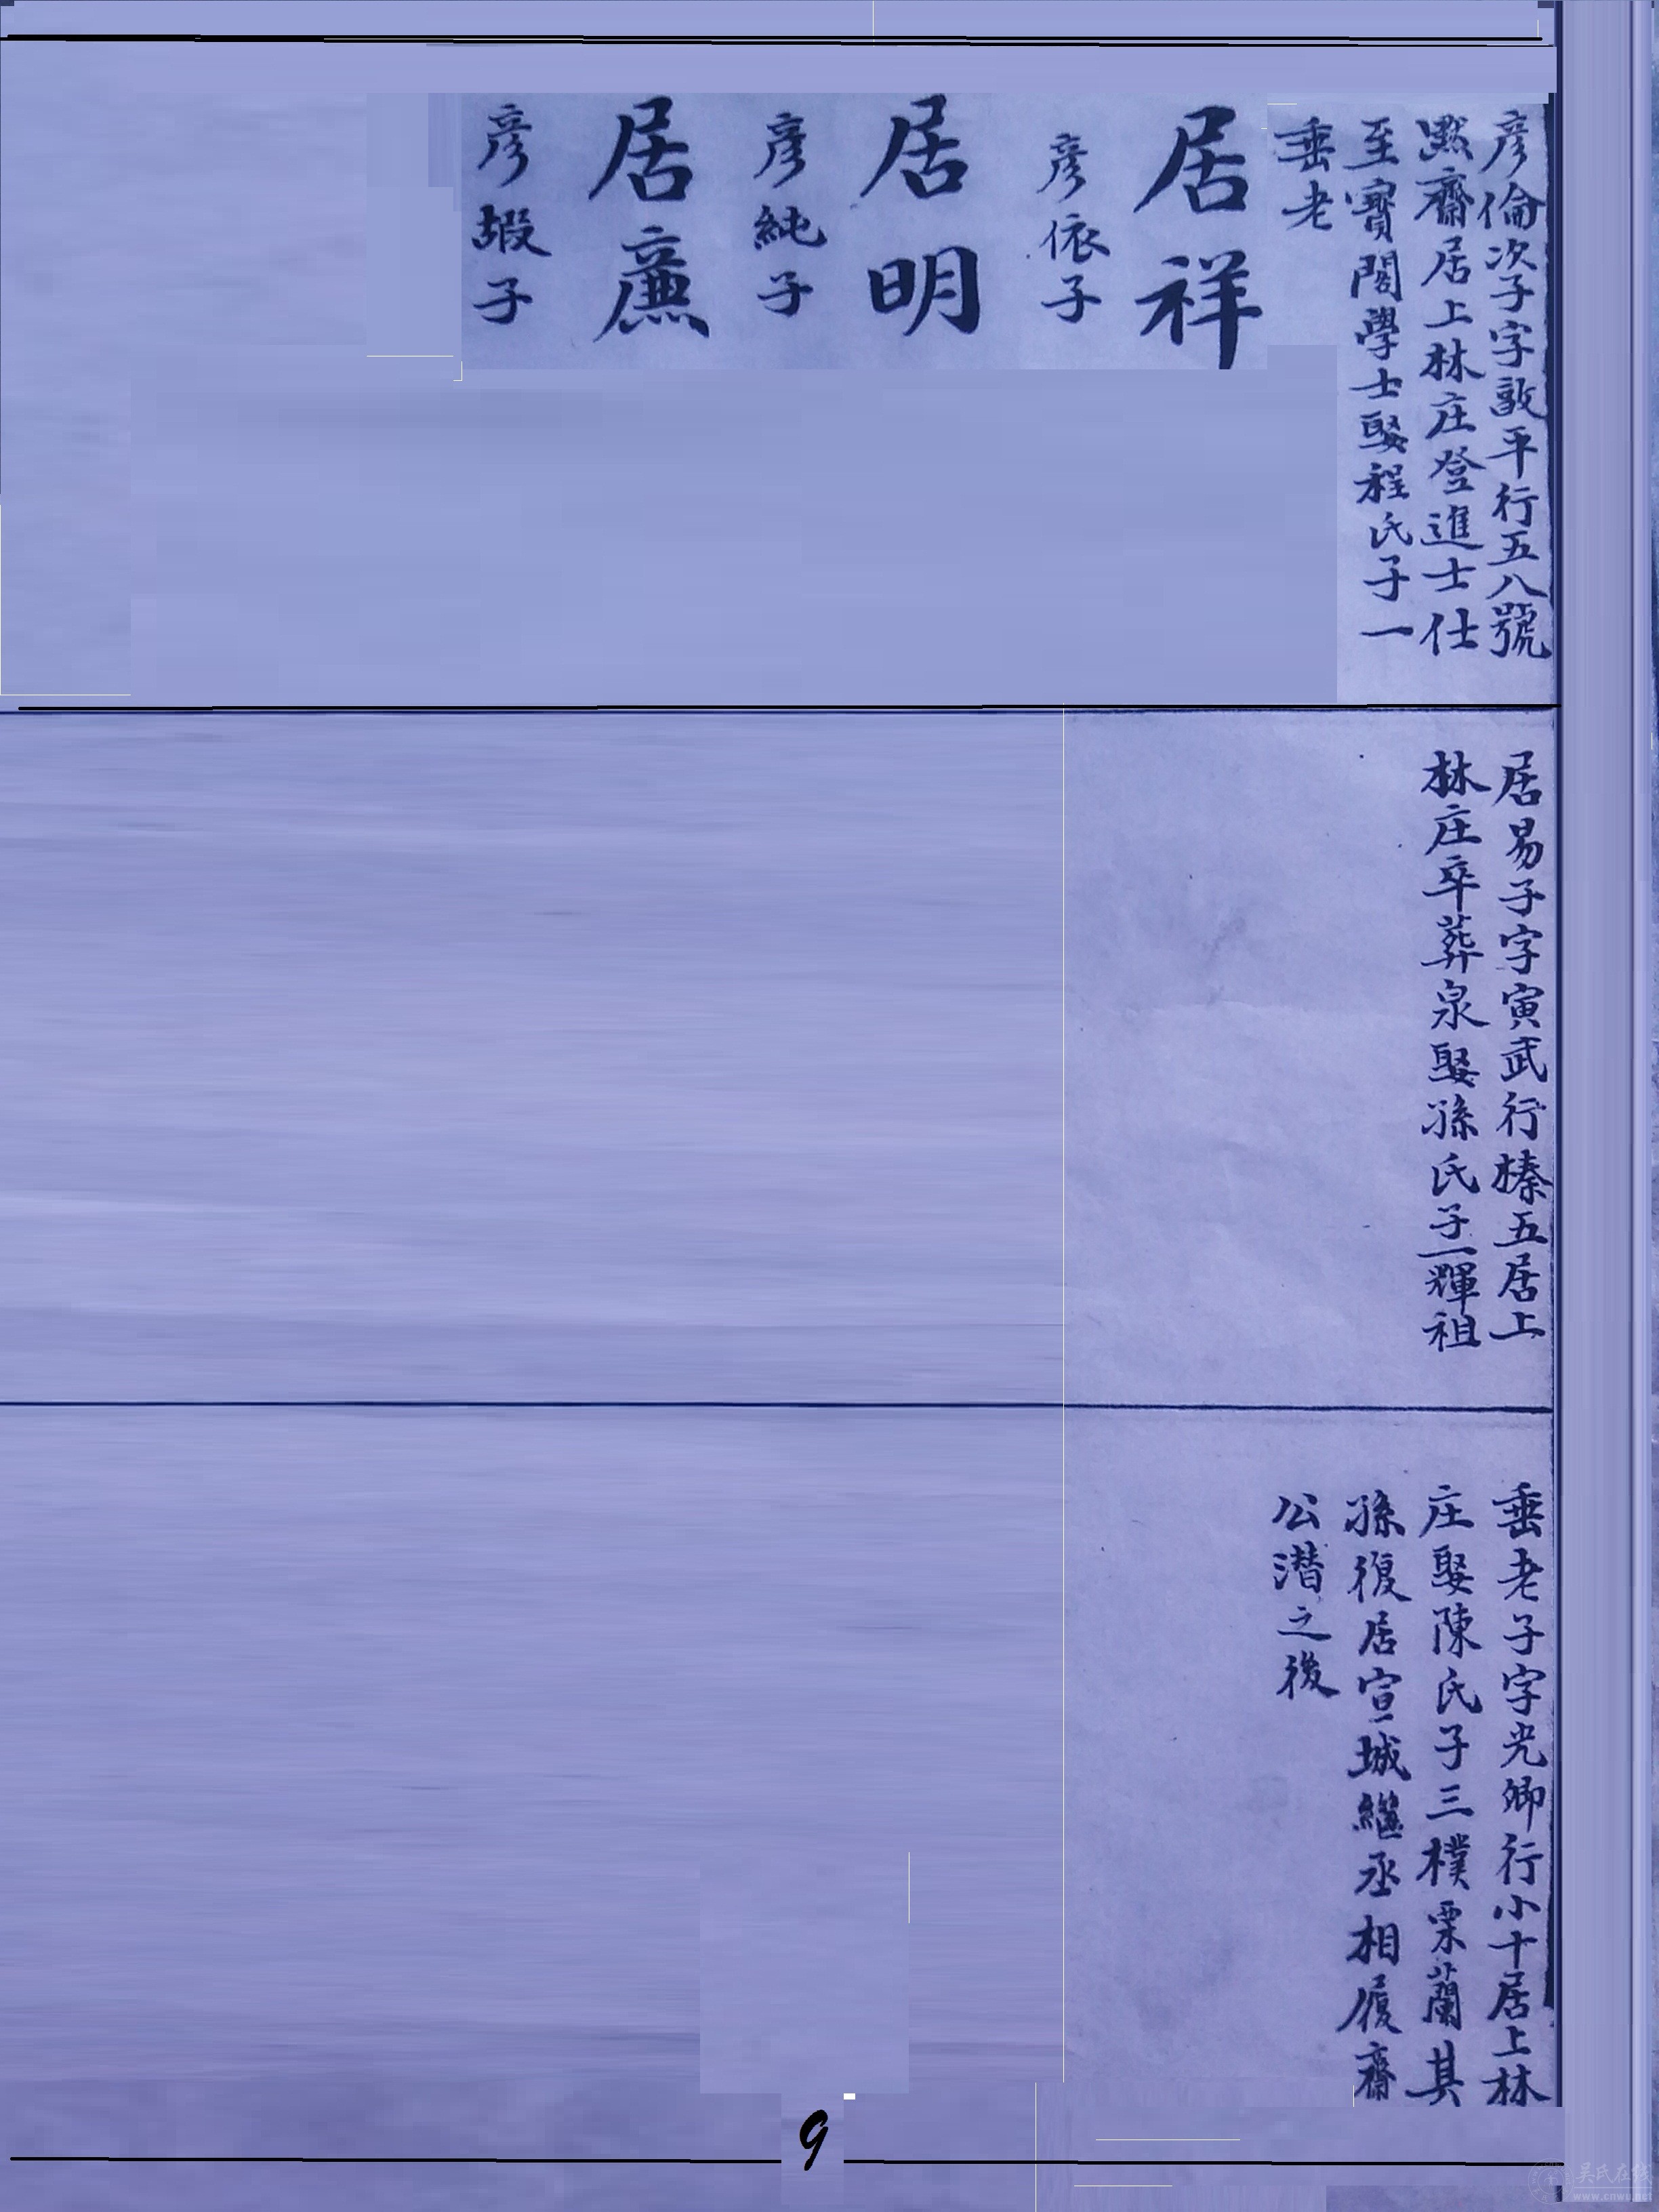 彦倫次子字敦平行五八號
黙齋居上林庄登進士仕
至寳閣學士娶程氏子一
垂老
居祥
彦依子
居明
彦純子
居廉
彦嘏子
居易子字寅武行榛五居上
林庄卒葬泉娶孫氏子一輝祖
垂老子字光卿行小十居上林
庄娶陳氏子三樸栗蘭其
孫復居宣城繼丞相履齋
公潜之後
9
吴氏在线
www.cnwu.net